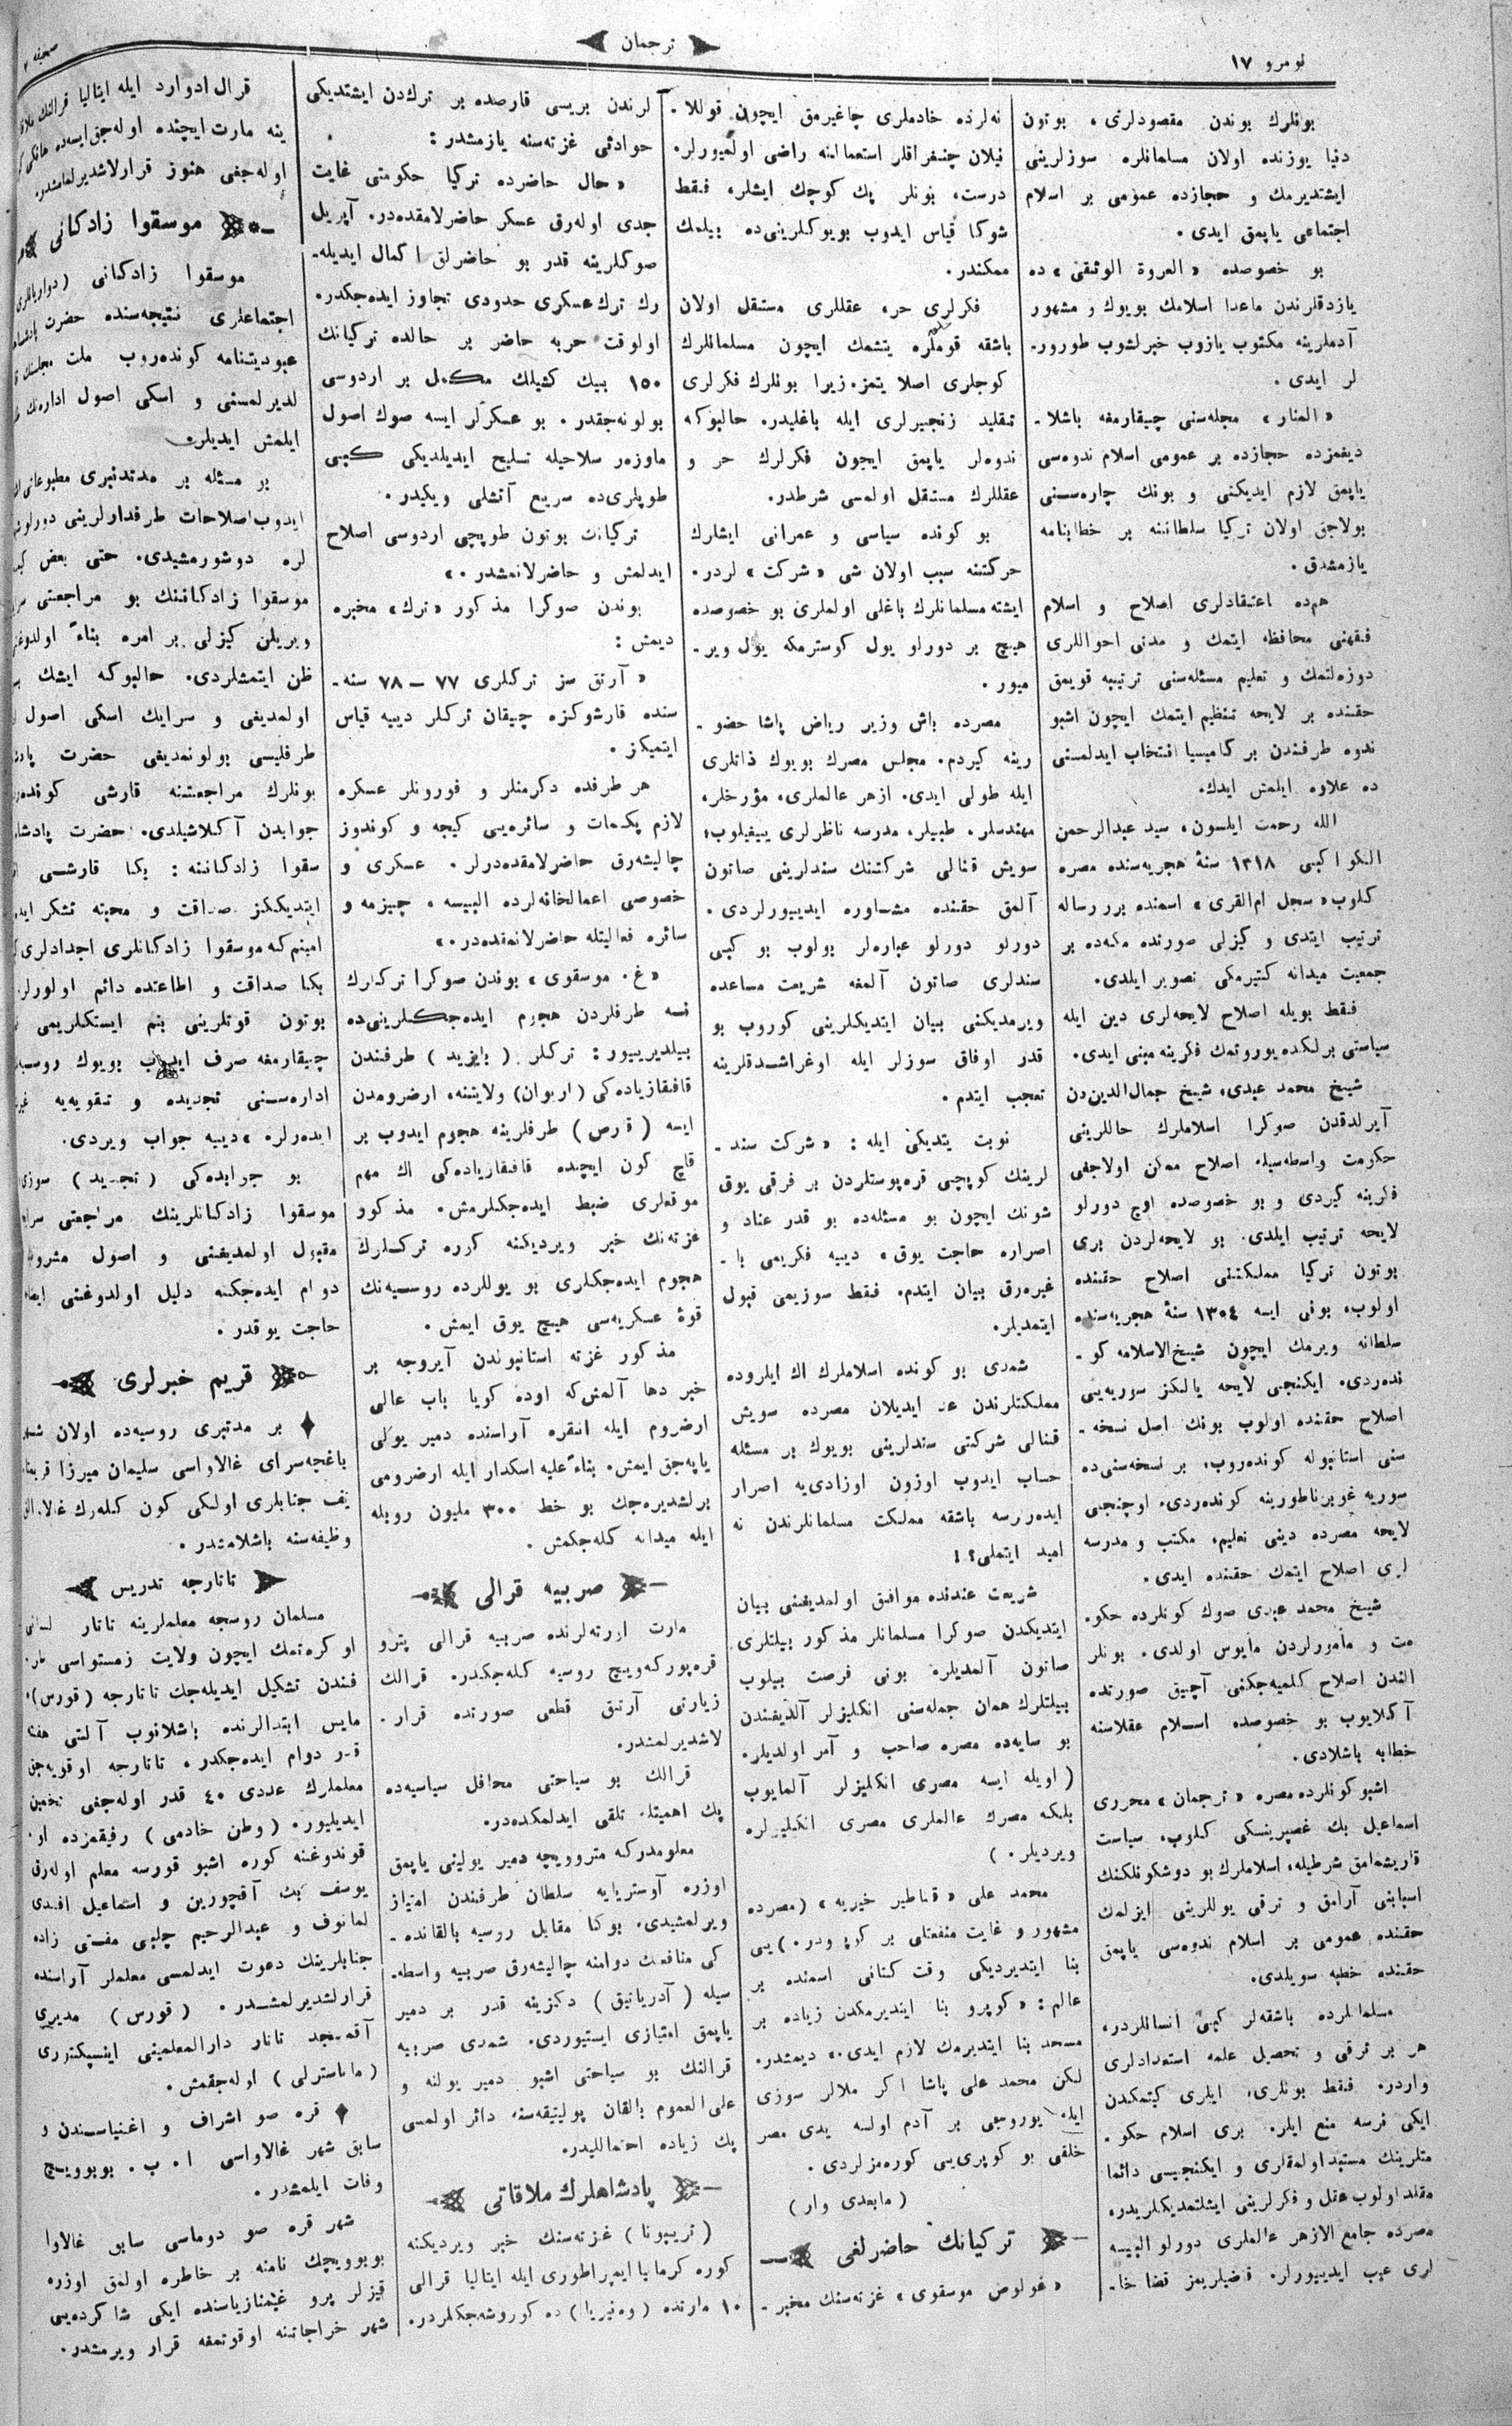 نومرو ١٧
ترجمان
صحيفه
بونلرك بوندن مقصودلرى، بوتون
دنيا يوزنده اولان مسلمانلره سوزلرينى
ايشتديرمك و حجازده عمومى بر اسلام
اجتماعى ياپمق ايدى.
بو خصوصده «العروة الوثقى» ده
يازدقلرندن ماعدا اسلامك بويوك و مشهور
آدملرينه مكتوب يازوب خبرلشوب طورور-
لر ايدى.
«المنار» مجله‌سنى چيقارمغه باشلا-
ديغمزده حجازده بر عمومى اسلام ندوه‌سى
ياپمق لازم ايديكنى و بونك چاره‌سنى
بولاجق اولان تركيا سلطاننه بر خطابنامه
يازمشدق.
هم‌ده اعتقادلرى اصلاح و اسلام
فقهنى محافظه ايتمك و مدنى احواللرى
دوزه‌لتمك و تعليم مسئله‌سنى ترتيبه قويمق
حقنده بر لايحه تنظيم ايتمك ايچون اشبو
ندوه طرفندن بر كاميسيا انتخاب ايدلمسنى
ده علاوه ايلمش ايدك.
الله رحمت ايلسون، سيد عبدالرحمن
الكواكبى ١٣١٨ سنۀ هجريه‌سنده مصره
كلوب «سجل ام‌القرى» اسمنده بررساله
ترتيب ايتدى و كيزلى صورتده مكه‌ده بر
جمعيت ميدانه كتيرمكى تصوير ايلدى.
فقط بويله اصلاح لايحه‌لرى دين ايله
سياستى برلكده يوروتمك فكرينه مبنى ايدى.
شيخ محمد عبدى، شيخ جمال‌الدين‌دن
آيرلدقدن صوكرا اسلاملرك حاللرينى
حكومت واسطه‌سيله اصلاح ممكن اولاجغى
فكرينه كيردى و بو خصوصده اوچ دورلو
لايحه ترتيب ايلدى. بو لايحه‌لردن برى
بوتون تركيا مملكتنى اصلاح حقنده
اولوب، بونى ايسه ١٣٠٤ سنۀ هجريه‌سنده
سلطانه ويرمك ايچون شيخ‌الاسلامه كو-
ندەردى. ايكنجى لايحه يالكز سوريه‌يى
اصلاح حقنده اولوب بونك اصل نسخه-
سنى استانبوله كوندەروب، بر نسخه‌سنى‌ده
سوريه غوبرناطورينه كوندەردى. اوچنجى
لايحه مصرده دينى تعليم، مكتب و مدرسه
لرى اصلاح ايتمك حقنده ايدى.
شيخ محمد عبدى صوك كونلرده حكو-
مت و مأمورلردن مأيوس اولدى. بونلر
الندن اصلاح كلميه‌جكنى آچيق صورتده
آكلايوب بو خصوصده اسلام عقلاسنه
خطابه باشلادى.
اشبو كونلرده مصره «ترجمان» محررى
اسماعيل بك غصپرينسكى كلوب، سياست
قاريشمامق شرطيله، اسلاملرك بو دوشكونلكنك
اسبابنى آرامق و ترقى يوللرينى ايزلەمك
حقنده عمومى بر اسلام ندوه‌سى ياپمق
حقنده خطبه سويلدى.
مسلمانلرده باشقه‌لر كبى انسانلردر،
هر بر ترقى و تحصيل علمه استعدادلرى
واردر. فقط بونلرى، ايلرى كيتمكدن
ايكى نرسه منع ايلر. برى اسلام حكو-
متلرينك مستبد اولمقلرى و ايكنجيسى دائما
مقلد اولوب عقل و فكرلرينى ايشلتمديكلريدر.
مصرده جامع الازهر عالملرى دورلو البيسه
لرى عيب ايدييورلر. قاضيلريمز قضا خا-
نه‌لرده خادملرى چاغيرمق ايچون قوللا-
نيلان چنغراقلر استعمالنه راضى اولميورلر.
درست، بونلر پك كوچك ايشلر، فقط
شوكا قياس ايدوب بويوكلرينى‌ده بيلمك
ممكندر.
فكرلرى حر، عقللرى مستقل اولان
باشقه قوملره يتشمك ايچون مسلمانلرك
كوجلرى اصلا يتمز. زيرا بونلرك فكرلرى
تقليد زنجيرلرى ايله باغليدر. حالبوكه
ندوه‌لر ياپمق ايچون فكرلرك حر و
عقللرك مستقل اولمسى شرطدر.
بو كونده سياسى و عمرانى ايشلرك
حركتنه سبب اولان شى «شركت» لردر.
ايشته مسلمانلرك باغلى اولملرى بو خصوصده
هيچ بر دورلو يول كوسترمكه يول وير-
ميور.
مصرده باش وزير رياض پاشا حضو-
رينه كيردم. مجلس مصرك بويوك ذاتلرى
ايله طولى ايدى. ازهر عالملرى، مؤرخلر،
مهندسلر، طبيلر، مدرسه ناظرلرى ييغيلوب؛
سويش قنالى شركتنك سندلرينى صاتون
آلمق حقنده مشاوره ايدييورلردى.
دورلو دورلو عباره‌لر بولوب بو كبى
سندلرى صاتون آلمغه شريعت مساعده
ويرمديكنى بيان ايتديكلرينى كوروب بو
قدر اوفاق سوزلر ايله اوغراشدقلرينه
تعجب ايتدم.
نوبت يتديكى ايله: «شركت سند-
لرينك كوپچى قره‌پوستلردن بر فرقى يوق
شونك ايچون بو مسئله‌ده بو قدر عناد و
اصراره حاجت يوق» دييه فكريمى با-
غيره‌رق بيان ايتدم. فقط سوزيمى قبول
ايتمديلر.
شمدى بو كونده اسلاملرك اك ايلروده
مملكتلرندن عد ايديلان مصرده سويش
قنالى شركتى سندلرينى بويوك بر مسئله
حساب ايدوب اوزون اوزادى‌يه اصرار
ايدەررسه باشقه مملكت مسلمانلرندن نه
اميد ايتملى؟!
شريعت عندنده موافق اولمديغنى بيان
ايتديكدن صوكرا مسلمانلر مذكور بيلتلرى
صاتون آلمديلر. بونى فرصت بيلوب
بيلتلرك همان جمله‌سنى انكليزلر آلديغندن
بو سايه‌ده مصره صاحب و آمر اولديلر.
(اويله ايسه مصرى انكليزلر آلمايوب
بلكه مصرك عالملرى مصرى انكليزلره
ويرديلر.)
محمد على «قناطير خيريه» (مصرده
مشهور و غايت منفعتلى بر كوپرودر.) يى
بنا ايتديرديكى وقت كتانى اسمنده بر
عالم: «كوپرو بنا ايتديرمكدن زياده بر
مسجد بنا ايتديرمك لازم ايدى.» ديمشدر.
لكن محمد على پاشا اكر ملالر سوزى
ايله يوروسيى بر آدم اولسه يدى مصر
خلقى بو كوپرى‌يى كوره‌مزلردى.
(مابعدى وار)
تركيانك حاضرلغى
«غولوص موسقوى» غزته‌سنك مخبر-
لرندن بريسى قارصده بر ترك‌دن ايشتديكى
حوادثى غزته‌سنه يازمشدر:
«حال حاضرده تركيا حكومتى غايت
جدى اوله‌رق عسكر حاضرلامقده‌در. آپريل
صوكلرينه قدر بو حاضرلق اكمال ايديله-
رك ترك عسكرى حدودى تجاوز ايده‌جكدر.
اولوقت حربه حاضر بر حالده تركيانك
١٥٠ بيك كشيلك مكمل بر اردوسى
بولونه‌جقدر. بو عسكرلر ايسه صوك اصول
ماوزەر سلاحيله تسليح ايديلديكى كبى
طوپلرى‌ده سريع آتشلى ويكيدر.
تركيانك بوتون طوپچى اردوسى اصلاح
ايدلمش و حاضرلانمشدر.»
بوندن صوكرا مذكور «ترك» مخبره
ديمش:
«آرتق سز تركلرى ٧٧ — ٧٨ سنه-
سنده قارشوكزه چيقان تركلر دييه قياس
ايتميكز.
هر طرفده دكرمنلر و فورونلر عسكره
لازم پكسمات و سائره‌يى كيجه و كوندوز
چاليشه‌رق حاضرلامقده‌درلر. عسكرى و
خصوصى اعمالخانه‌لرده البيسه، چيزمه و
سائره فعاليتله حاضرلانمقده‌در.»
«غ. موسقوى» بوندن صوكرا تركلرك
نسه طرفلردن هجوم ايده‌جكلرينى‌ده
بيلديرييور: تركلر (بايزيد) طرفندن
قافقازياده‌كى (اريوان) ولايتنه، ارضرومدن
ايسه (قرص) طرفلرينه هجوم ايدوب بر
قاچ كون ايچنده قافقازياده‌كى اك مهم
موقعلرى ضبط ايده‌جكلرمش. مذكور
غزته‌نك خبر ويرديكنه كوره تركلرك
هجوم ايده‌جكلرى بو يوللرده روسيه‌نك
قوۀ عسكريه‌سى هيچ يوق ايمش.
مذكور غزته استانبولدن آيروجه بر
خبر دها آلمش‌كه اوده كويا باب عالى
ارضروم ايله انقره آراسنده دمير يولى
ياپه‌جق ايمش. بناءً عليه اسكدار ايله ارضرومى
برلشديره‌جك بو خط ٣٠٠ مليون روبله
ايله ميدانه كله‌جكمش.
صربيه قرالى
مارت اورته‌لرنده صربيه قرالى پترو
قره‌يوركه‌ويچ روسيه كله‌جكدر. قرالك
زيارتى آرتق قطعى صورتده قرار-
لاشديرلمشدر.
قرالك بو سياحتى محافل سياسيه‌ده
پك اهميتله تلقى ايدلمكده‌در.
معلومدركه متروويچه دمير يولينى ياپمق
اوزره آوستريايه سلطان طرفندن امتياز
ويرلمشيدى. بوكا مقابل روسيه بالقانده-
كى منافعنك دوامنه چاليشه‌رق صربيه واسطه-
سيله (آدرياتيق) دكزينه قدر بر دمير
ياپمق امتيازى ايستيوردى. شمدى صربيه
قرالنك بو سياحتى اشبو دمير يولنه و
على العموم بالقان پوليتيقه‌سنه دائر اولمسى
پك زياده احتماليدر.
پادشاهلرك ملاقاتى
(تريبونا) غزته‌سنك خبر ويرديكنه
كوره كرمانيا ايمپراطورى ايله ايتاليا قرالى
١٠ مارتده (وەنيريا) ده كوروشه‌جكلردر.
قرال ادوارد ايله ايتاليا قرالنك
ينه مارت ايچنده اوله‌جق ايسه‌ده
اوله‌جغى هنوز قرارلاشديرلمامشدر.
موسقوا زادكانى
موسقوا زادكانى (دواريانلرى
اجتماعلرى نتيجه‌سنده حضرت
عبوديتنامه كوندەروب ملت مجلسنك
لديرلمسنى و اسكى اصول اداره‌نك
ايلمش ايديلر.
بر مسئله بر مدتدنبرى مطبوعاتى
ايدوب اصلاحات طرفدارلرينى دورلو
لره دوشورمشيدى. حتى بعض
موسقوا زادكاننك بو مراجعتى
ويريلن كيزلى بر امره بناءً
ظن ايتمشلردى. حالبوكه ايشك
اولمديغى و سرايك اسكى اصول
طرفليسى بولونمديغى حضرت
بونلرك مراجعتنه قارشى
جوابدن آكلاشيلدى. حضرت
سقوا زادكاننه: بكا قارشى
ايتديككز صداقت و محبته تشكر
امينم‌كه موسقوا زادكانلرى اجدادلرى
بكا صداقت و اطاعتده دائم
بوتون قوتلرينى بنم ايستكلريمى
چيقارمغه صرف ايدوب بويوك
اداره‌سنى تجديده و تقويه‌يه
ايدەرلر» دييه جواب ويردى.
بو جوابده‌كى (تجديد) سوزى
موسقوا زادكانلرينك مراجعتى
مقبول اولمديغنى و اصول
دوام ايده‌جكنه دليل اولدوغنى
حاجت يوقدر.
قريم خبرلرى
بر مدتبرى روسيه‌ده اولان
باغچه‌سراى غالاواسى سليمان ميرزا
يف جنابلرى اولكى كون كله‌رك
وظيفه‌سنه باشلامشدر.
تاتارجه تدريس
مسلمان روسجه معلملرينه تاتار لسانى
اوكره‌تمك ايچون ولايت زمستواسى طر-
فندن تشكيل ايديله‌جك تاتارجه (قورس)
مايس ابتدالرنده باشلانوب آلتى هفته
قدر دوام ايده‌جكدر. تاتارجه اوقويه‌جق
معلملرك عددى ٤٠ قدر اوله‌جغى تخمين
ايديليور. (وطن خادمى) رفيقمزده او-
قوندوغنه كوره اشبو قورسه معلم اوله‌رق
يوسف بك آقچورين و اسماعيل افندى
لمانوف و عبدالرحيم چلبى مفتى زاده
جنابلرينك دعوت ايدلمسى معلملر آراسنده
قرارلشديرلمشدر. (قورس) مديرى
آقمسجد تاتار دارالمعلمينى اينسپكتورى
(ماناسترلى) اوله‌جقمش.
قره صو اشراف و اغنياسندن و
سابق شهر غالاواسى ا. ب. بوبوويچ
وفات ايلمشدر.
شهر قره صو دوماسى سابق غالاوا
بوبوويچك نامنه بر خاطره اولمق اوزره
قيزلر پرو غيمنازياسنده ايكى شاكرده‌يى
شهر خراجاتنه اوقوتمغه قرار ويرمشدر.